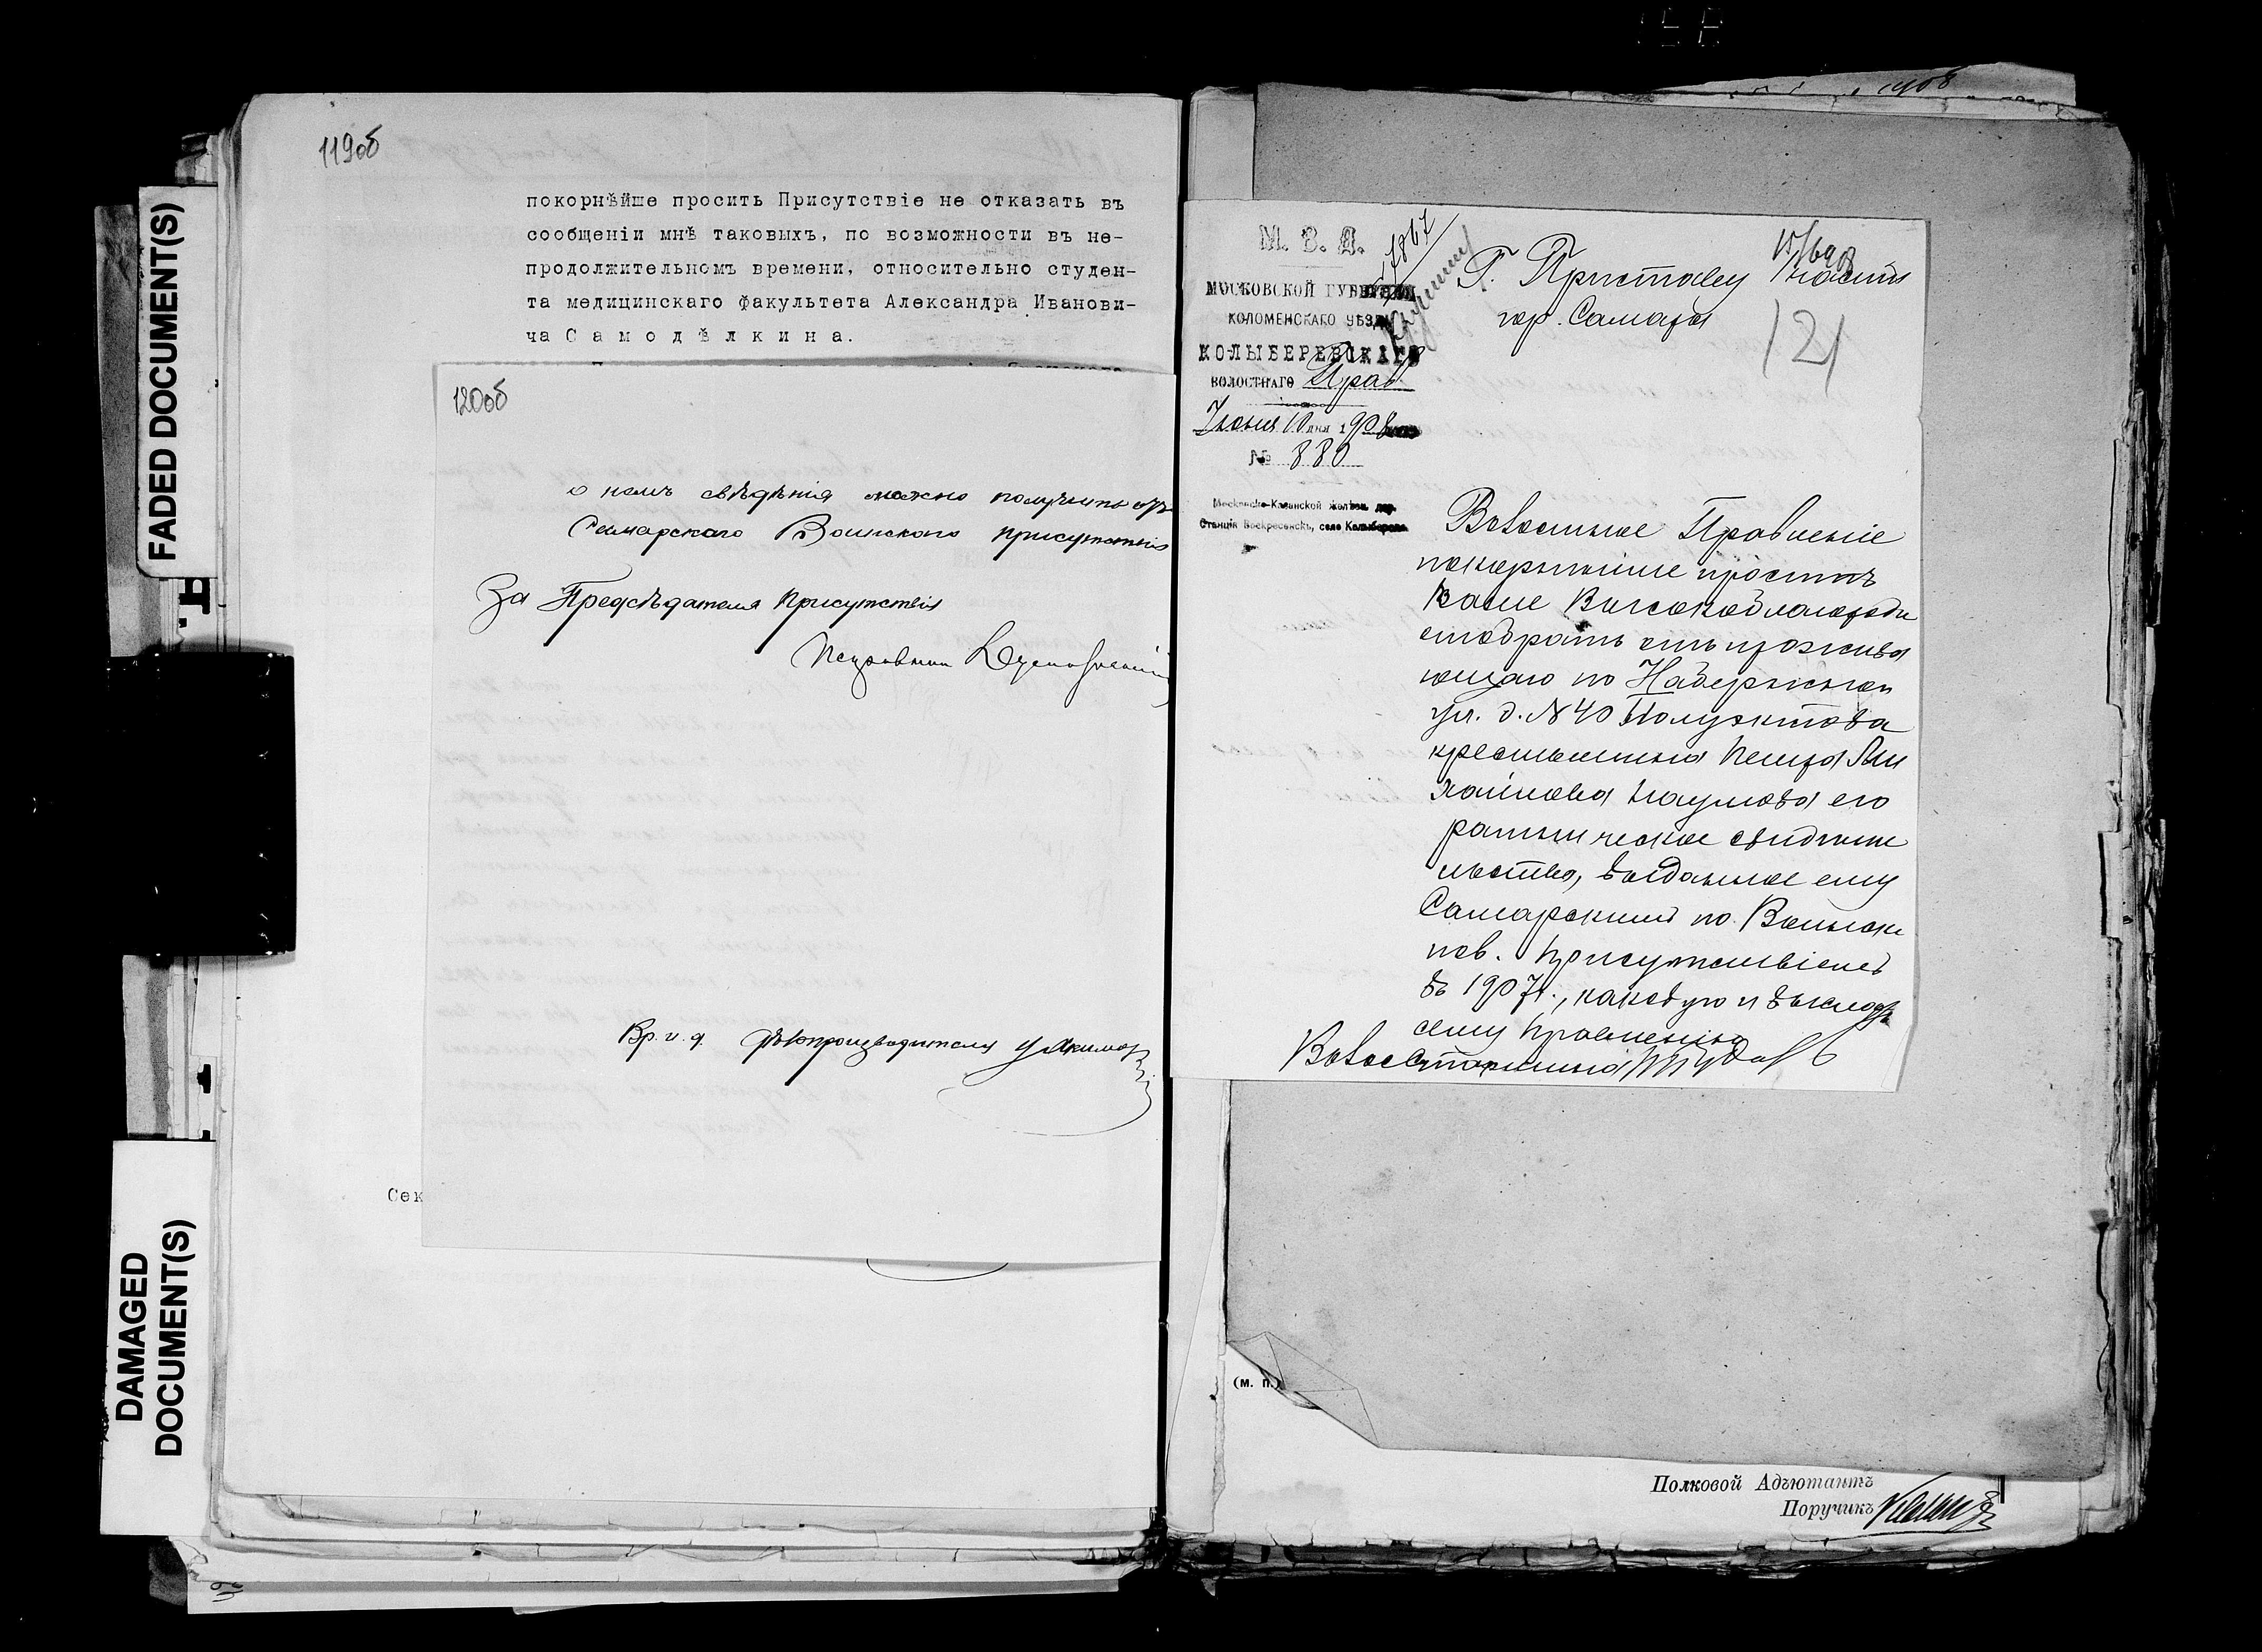 FADED DOCUMENT(S)
DAMAGED
DOCUMENT(S)
119об
покорнѣйше просить Присутствіе не отказать въ
сообщеніи мнѣ таковыхъ, по возможности въ не-
продолжительномъ времени, относительно студен-
та медицинскаго факультета Александра Иванови-
ча Самодѣлкина.
120об
о немъ свѣдѣнія можно получить отъ
Самарскаго Воинскаго присутствія
За Предсѣдателя Присутствія
Исправникъ
Вр. и. д. дѣлопроизводителя Якимовъ
Сек
1908
М. В. Д.
МОСКОВСКОЙ ГУБЕРНІИ
КОЛОМЕНСКАГО УѢЗДА
КОЛЫБЕРЕВСКАГО
ВОЛОСТНАГО Прав.
Іюня 10 дня 1908
№ 880
Московско-Казанской желѣзн. дор.
Станція Воскресенскъ, село Колыберево
Г. Приставу части
гор. Самары
121
Волостное Правленіе
покорнѣйше проситъ
Ваше Высокоблагороді
отобрать отъ прожива
ющаго по Набережной
ул. д. № 40 Полуэктова
крестьянина Петра Ми
хайлова Наумова его
ратническое свидѣте
льство, выданное ему
Самарскимъ по Воинск
пов. присутствіемъ
въ 1907 г., каковую и выслать
сему правленію
Волос Старшина
(м. п.)
Полковой Адъютантъ
Поручикъ